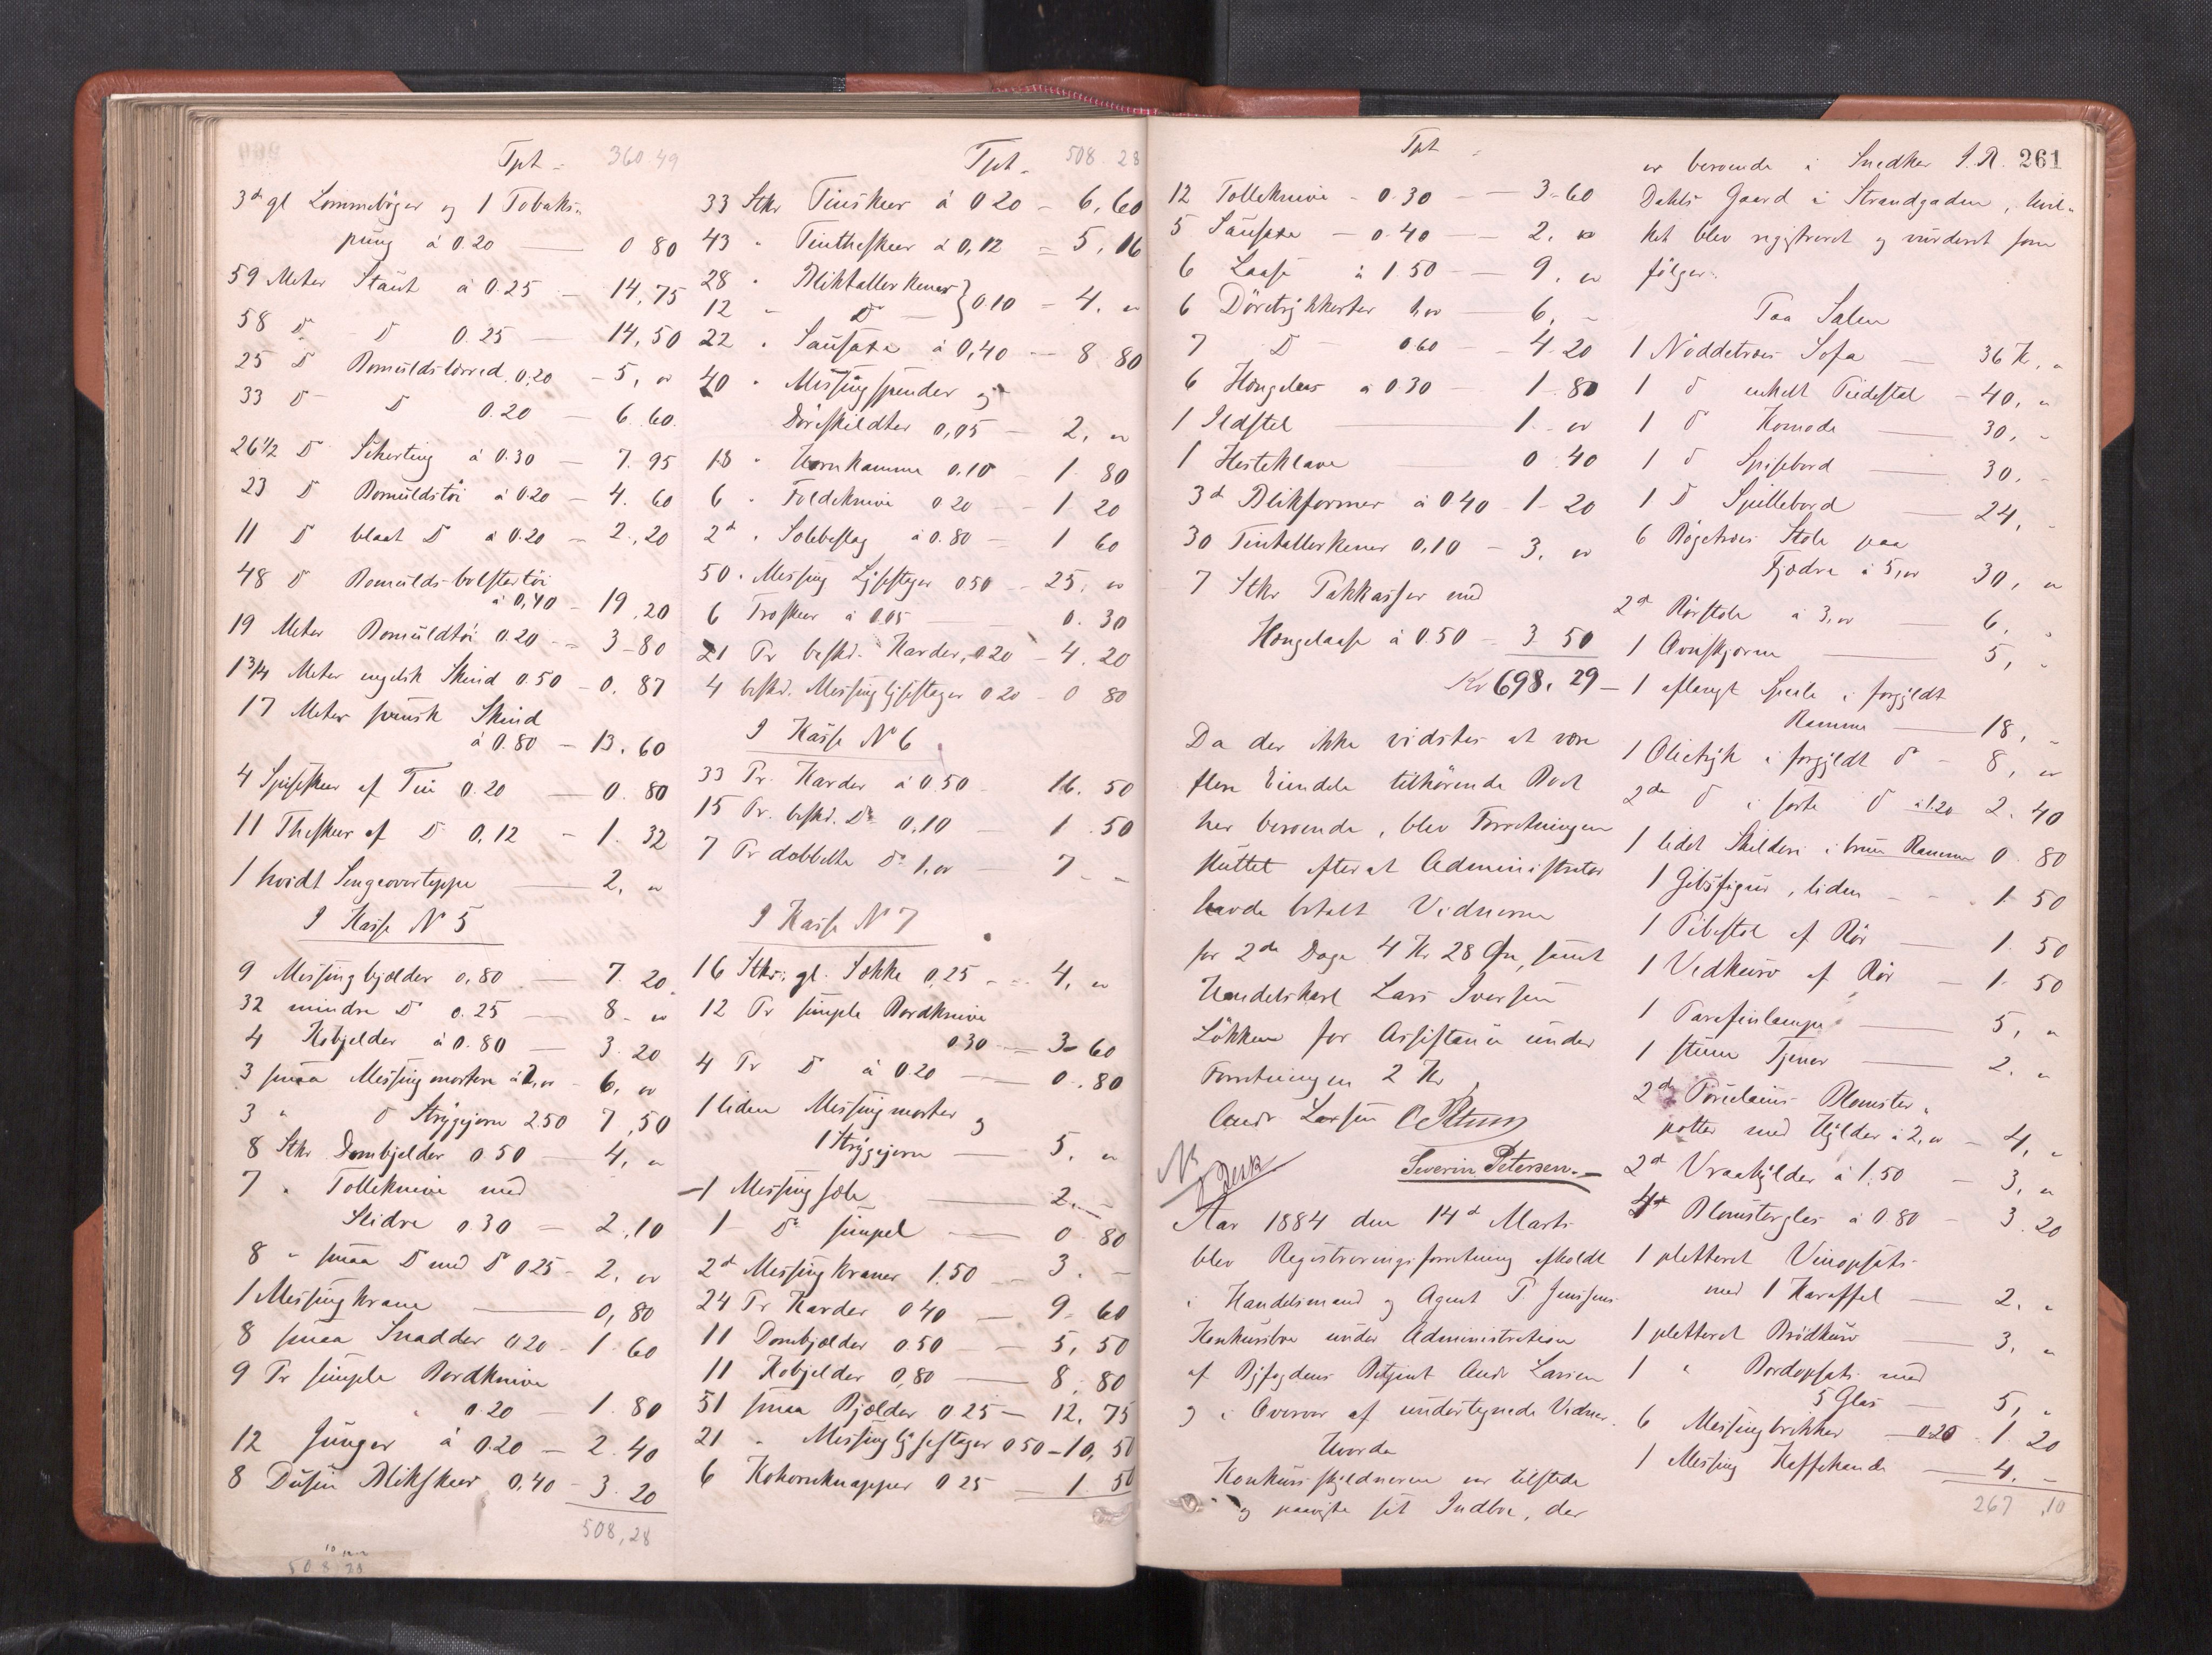 Tpt. 360.49
3de gl Lommebøger og 1 Tobaks-
pung á 0.20 — 0 80
59 Meter Staut á 0.25 — 14,75
58 D D 0.25 — 14,50
25 D Bomuldslærred 0,20 — 5, "
33 D D 0.20 — 6.60.
26 1/2 D Schirting á 0.30 — 7.95
23 D Bomuldstøi á 0.20 — 4.60
11 D blaat D á 0.20 — 2,20
48 D Bomulds-bolstertøi
á 0,40 — 19,20
19 Meter Bomuldtøi 0.20 — 3-80
1 3/4 Meter engelsk Skind 0.50 — 0.87
17 Meter Skind
á 0.80 — 13.60
4 Spiseskeer af Tin 0.20 — 0.80
11 Theskeer af D 0,12 — 1.32
1 hvidt Sengeovertæppe — 2, "
I Kasse No 5
9 Messingbjælder 0,80 — 7.20
32 mindre D 0.25 — 8 - "
4 Kobjelder á 0.80 — 3.20
3 smaa Messingmortere á 2, " — 6, "
3 " D Strygejern 2.50 7,50
8 Stkr Dombjelder 0.50 — 4, "
7 " Tolleknive med
Slidre 0.30 — 2.10
8 " smaa D med D 0.25 — 2, "
1 Messingkrane — 0,80
8 smaa Snadder 0.20 — 1.60
9 Pr simple Bordknive
0.20 — 1.80
12 á 0.20 — 2.40
8 Dusin Blikskeer 0,40 — 3.20
508,28
508.28
Tpt. 508.28
33 Stkr Tinskeer á 0 20 — 6,60
43 " Tintheskeer á 0,12 = 5,16
28 " Bliktallerkener
12 " D } 0.10 — 4, "
22 " Sauesaxe á 0,40 — 8 80
40 " Messingspænder og
Dørskildter 0,05 — 2, "
18 " Hornkamme 0.10 — 1.80
6 " Foldeknive 0 20 — 1 20
2de " Solebeslag á 0.80 — 1 60
50 " Messing Lysestager 0 50 — 25, "
6 á 0.05 — 0.30
21 Pr beskd. Karder, 0 20 — 4.20
4 beskd. Messinglysestager 0 20 — 0 80
I Kasse No 6
33 Pr. Karder á 0.50 — 16.50
15 Pr. beskd. Do 0,10 — 1.50
7 Pr dobbelte Do 1, " — 7 -
I Kasse No 7
16 Stkr. gl. Sække 0,25 — 4, "
12 Pr simple Bordknive
0.30 — 3-60
4 Pr D á 0.20 — 0.80
1 liden Messingmorter og
1 Strygejern — 5, "
1 Messing — 2. -
1 Do simpel — 0 80
2de Messingkraner 1.50 — 3. -
24 Pr Karder 0 40 — 9.60
11 Dombjælder 0.50 — 5,50
11 Kobjelder 0,80 — 8.80
51 smaa Bjælder 0 25 — 12,75
21 " Messinglysestager 0 50 — 10,50
6 Kohornknapper 0 25 — 1 50
Tpt
12 Tolleknive - 0.30 — 3-60
5 Sauesaxe — 0.40 — 2, "
6 Laase á 1.50 — 9, "
6 Dørtrykkerter 1, " — 6, -
7 D 0.60 — 4.20
6 Hængelaas á 0.30 — 1.80
1 Ildstel — 1. "
1 Hesteklave 0.40
3de Blikformer á 0 40 — 1 - 20
30 Tintallerkener 0,10 — 3, "
7 Stkr Pakkasser med
Hængelaase á 0.50 — 3 50
Kr 698. 29
Da der ikke vidstes at være
flere Eiendele tilhørende Boet
her beroende, blev Forretningen
sluttet efterat Administrator
havde betalt Vidnerne
for 2de Dage 4 Kr 28 Øre, samt
Handelskarl Lars Iversen
Løkken for Assistance under
Forretningen 2 Kr.
Andr Larsen
Severin Petersen.
Aar 1884 den 14de Marts
blev Registreringsforretning afholdt
i Handelsmand og Agent P. Jenssens
Konkursbo under Administration
af Byfogdens Betjent Andr Larsen
og i Overvær af undertegnede Vidner.
Hvorda
Konkursskyldneren var tilstede
og paaviste sit Indbo, der
261
er beroende i Snedker I. R.
Dahls Gaard i Strandgaden, hvil-
ket blev registreret og vurderet som
følger:
Paa Salen
1 Nøddetræs Sofa — 36 Kr. "
1 D enkelt Piedestal — 40, "
1 D Komode — 30, -
1 D Spisebord — 30, -
1 D Spillebord — 24, -
6 Bøgetræs Stole paa
Fjædre á 5, " 30, "
2de Rørstole á 3, " — 6, -
1 Ovnskjerm — 5, -
1 aflangt Speile i forgyldt
Ramme — 18, -
1 Olietryk i forgyldt D — 8, "
2de D i sorte D á 1.20 2.40
1 lidet Skilderi i brun Ramme 0.80
1 Gibsfigur, liden — 1.50
1 Pibestol af Rør — 1.50
1 Vedkurv af Rør — 1.50
1 Parafinlampe — 5, "
1 stum Tjener — 2. "
2de Porcelains Blomster-
potter med Hylder á 2, " — 4, "
2de Vraahylder á 1.50 — 3, "
4de Blomsterglas á 0 80 — 3.20
1 pletteret Vinopsats
med 1 Karaffel — 2. "
1 pletteret Brødkurv — 3, "
1 " Bordopsats med
5 Glas — 5, "
6 Messingbrikker — 0.20 — 1.20
1 Messing Kaffekande — 4, -
267,10